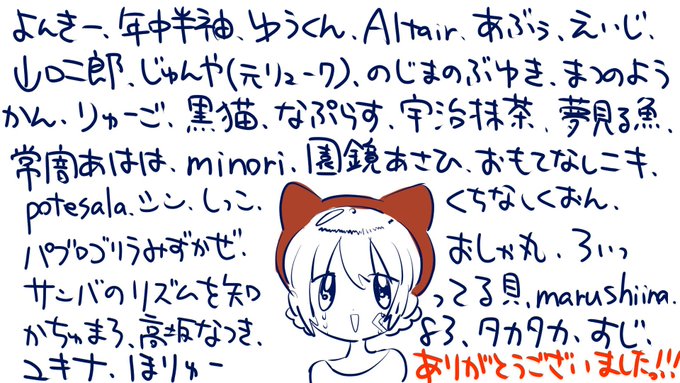 よんきー、年中半袖、ゆうくん、Altair、あぶぅ、えいじ、
山口二郎、じゅんや(元リューク)、のじまのぶゆき、まつのよう
かん、りゅーご、黒猫、なぷらす、宇治抹茶、夢見る魚、
常闇あはは、minori、園鏡あさひ、おもてなしニキ、
potesala、シン、しっこ、くちなしくおん、
パブロゴリラみずかぜ、おしゃ丸、ろいっ
サンバのリズムを知ってる貝、marushiina、
かちゅまろ、高坂なつき、83、タカタカ、すじ、
ユキナ、ほりゅー ありがとうございました!!!